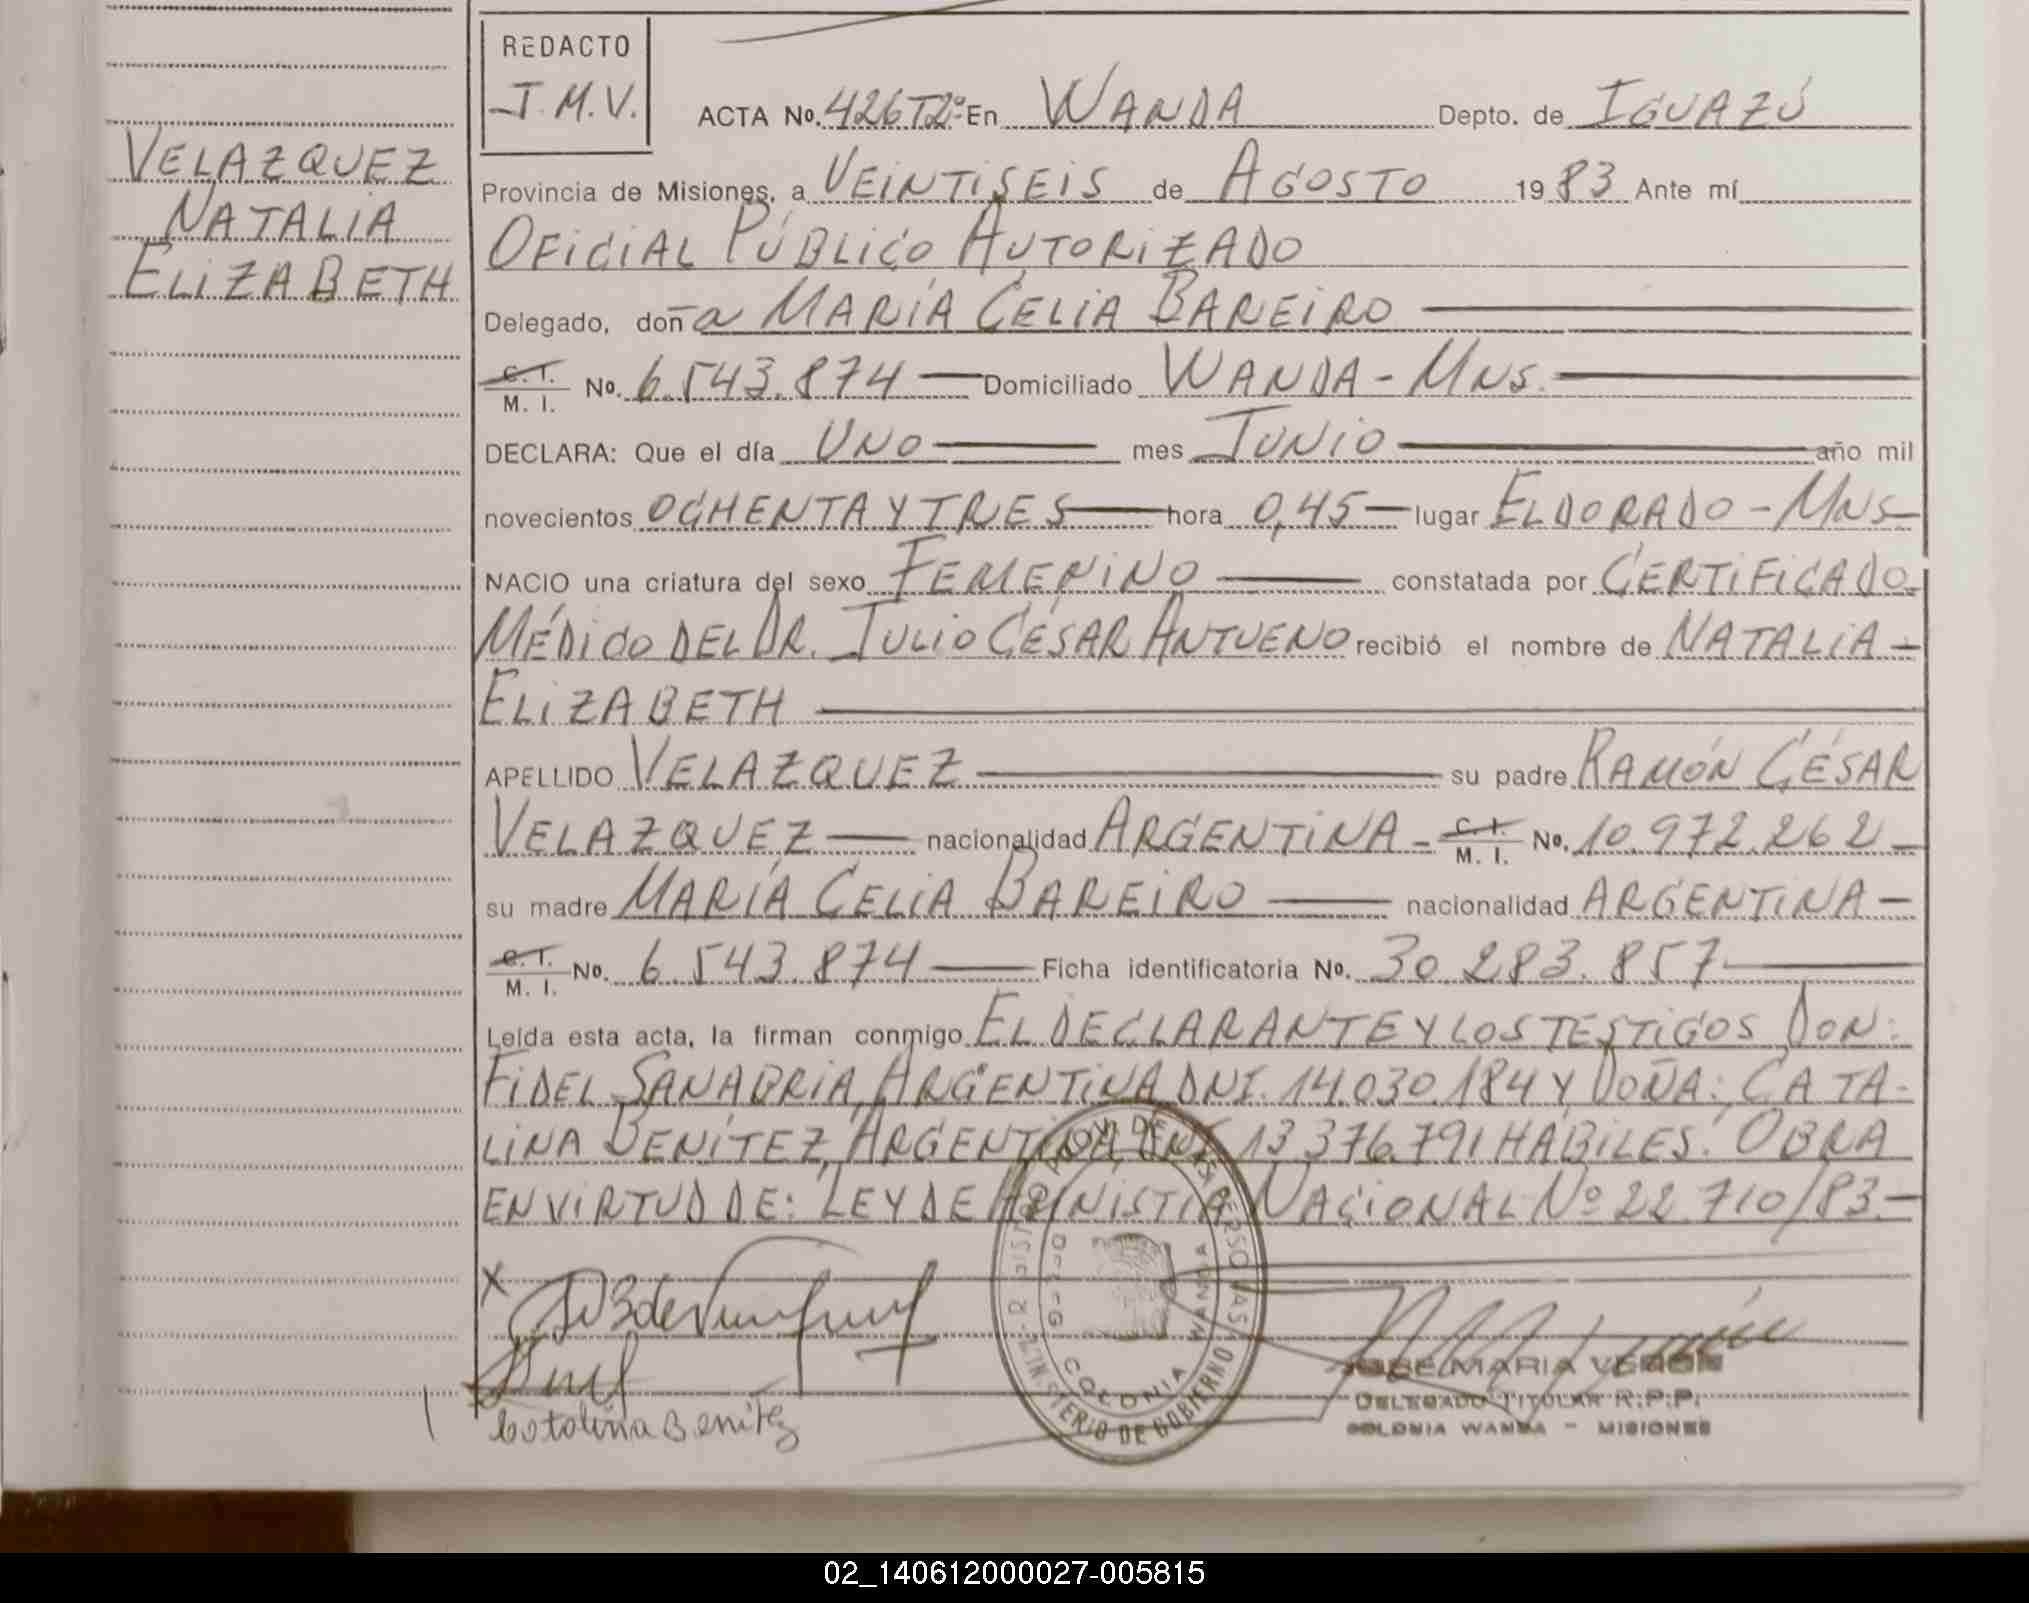 REDACTO
J.M.V.
ACTA No. 426T2º En WANDA Depto. de IGUAZÚ
VELAZQUEZ
NATALIA
ELIZABETH
Provincia de Misiones, a VEINTISEIS de AGOSTO 1983 Ante mí
OFICIAL PÚBLICO AUTORIZADO
Delegado, doña MARÍA CELIA BAREIRO
C. I.
M. I. No. 6.543.874 Domiciliado WANDA - MNS.
DECLARA: Que el día UNO mes JUNIO año mil
novecientos OCHENTA Y TRES hora 0,45 lugar ELDORADO - MNS
NACIO una criatura del sexo FEMENINO constatada por CERTIFICADO
MÉDICO DEL DR. JULIO CÉSAR ANTUENO recibió el nombre de NATALIA -
ELIZABETH
APELLIDO VELAZQUEZ su padre RAMÓN CÉSAR
VELAZQUEZ nacionalidad ARGENTINA - C. I.
M. I. No. 10.972.262
su madre MARÍA CELIA BAREIRO nacionalidad ARGENTINA -
C. I.
M. I. No. 6.543.874 Ficha identificatoria No. 30.283.857
Leída esta acta, la firman conmigo EL DECLARANTE Y LOS TESTIGOS DON:
FIDEL SANABRIA, ARGENTINA DNI. 14.030.184 Y DOÑA: CATA-
LINA BENÍTEZ, ARGENTINA, DNI 13.376.791 HÁBILES. OBRA
EN VIRTUD DE: LEY DE AMNISTIA NACIONAL Nº 22.710/83.-
X
Catalina Benítez
MINISTERIO DE GOBIERNO
COLONIA WANDA
JOSE MARIA VERON
DELEGADO TITULAR R.P.P.
COLONIA WANDA - MISIONES
02_140612000027-005815